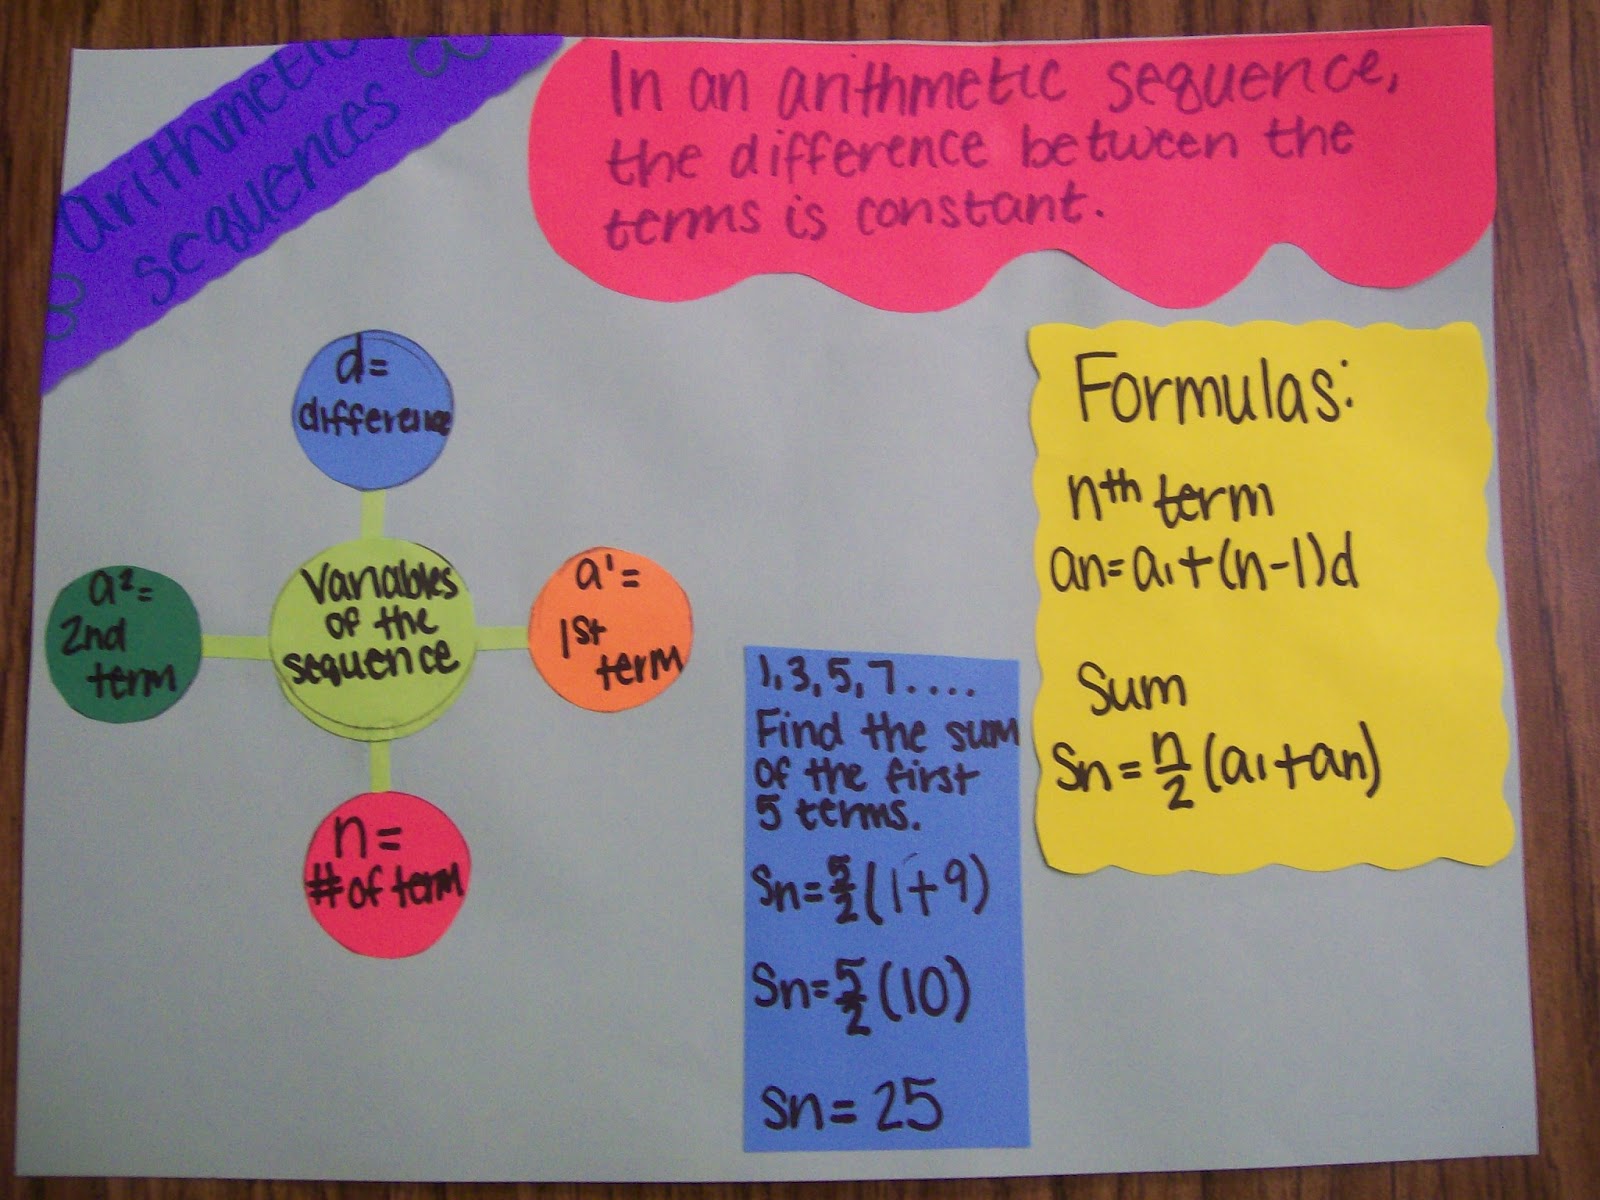 arithmetic
sequences
In an arithmetic sequence,
the difference between the
terms is constant.
d=
difference
a²=
2nd
term
Variables
of the
sequence
a¹=
1st
term
n=
# of term
1,3,5,7....
Find the sum
of the first
5 terms.
Sn=5/2(1+9)
Sn=5/2(10)
Sn=25
Formulas:
nᵗʰ term
an=a₁+(n-1)d
Sum
Sn=n/2(a₁+an)